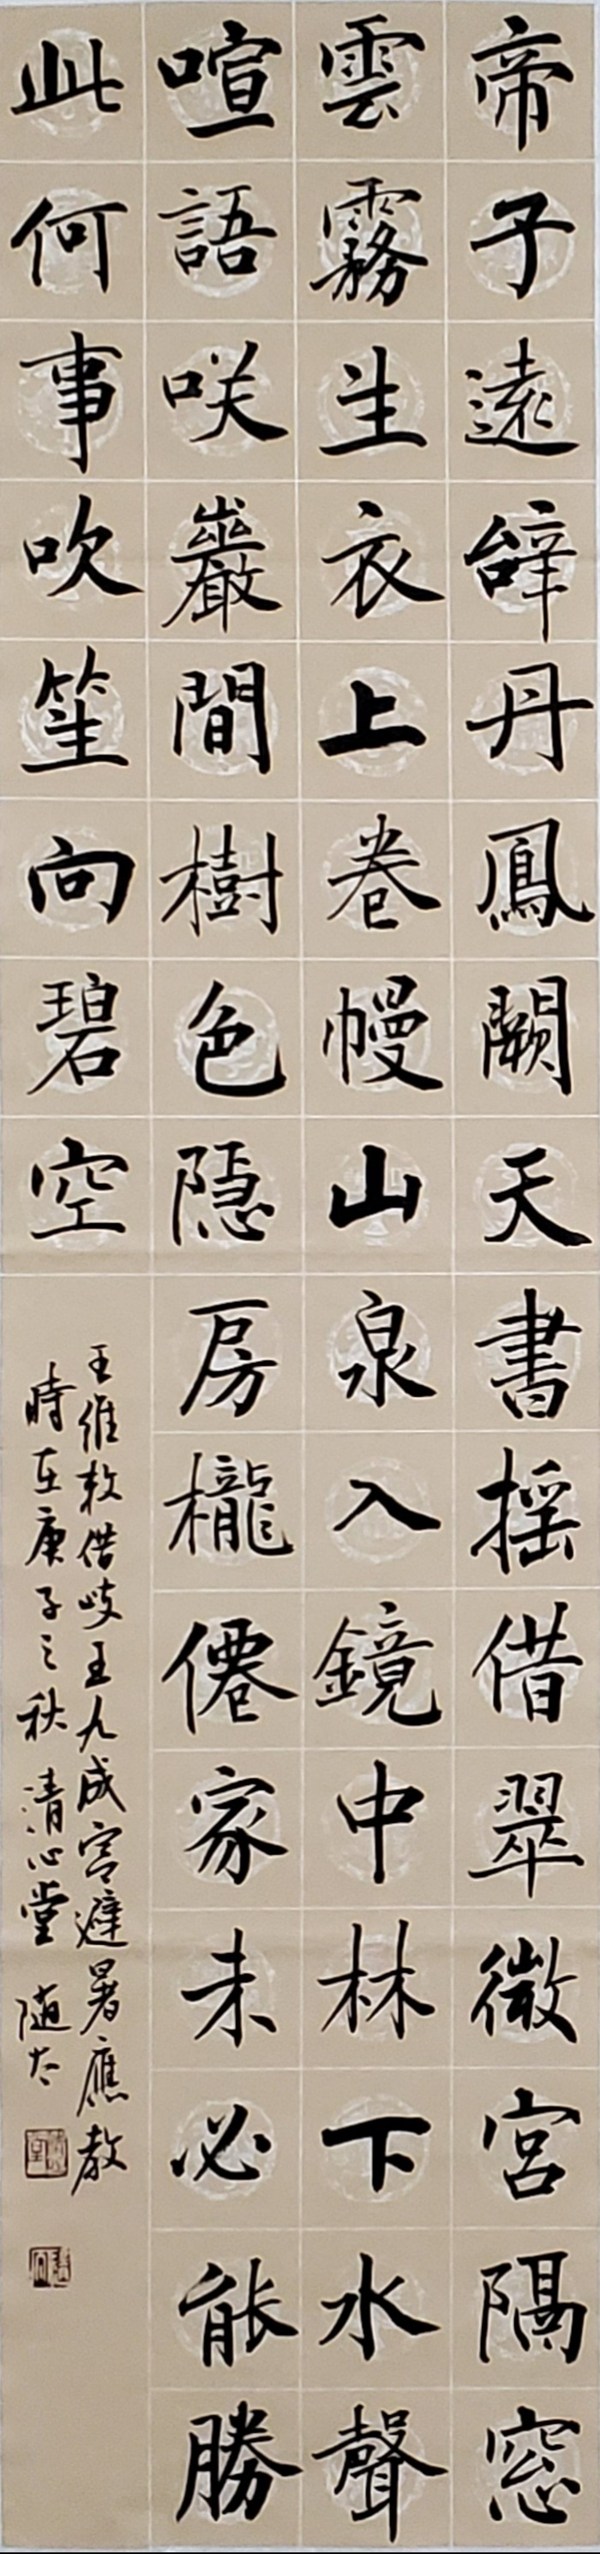 帝子遠辭丹鳳闕天書搖借翠微宮隔窓
雲霧生衣上卷幔山泉入鏡中林下水聲
喧語咲巖間樹色隱房櫳僊家未必能勝
此何事吹笙向碧空
王維敕借岐王九成宮避暑應教
時在庚子之秋 清心堂 隨